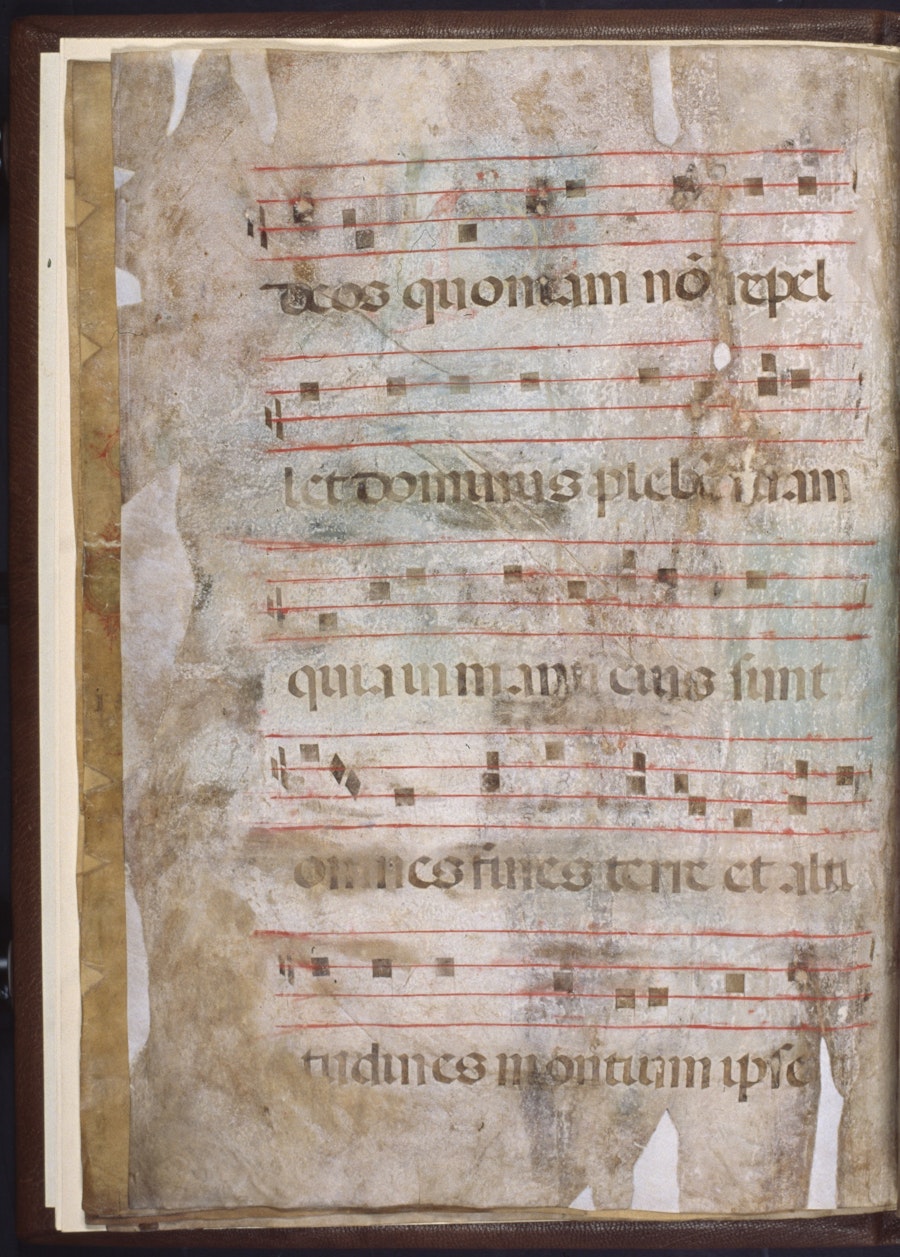 deos quoniam nō repel
let dominus plebem suam
quia in manu eius sunt
omnes fines terre et alti
tudines montium ipse